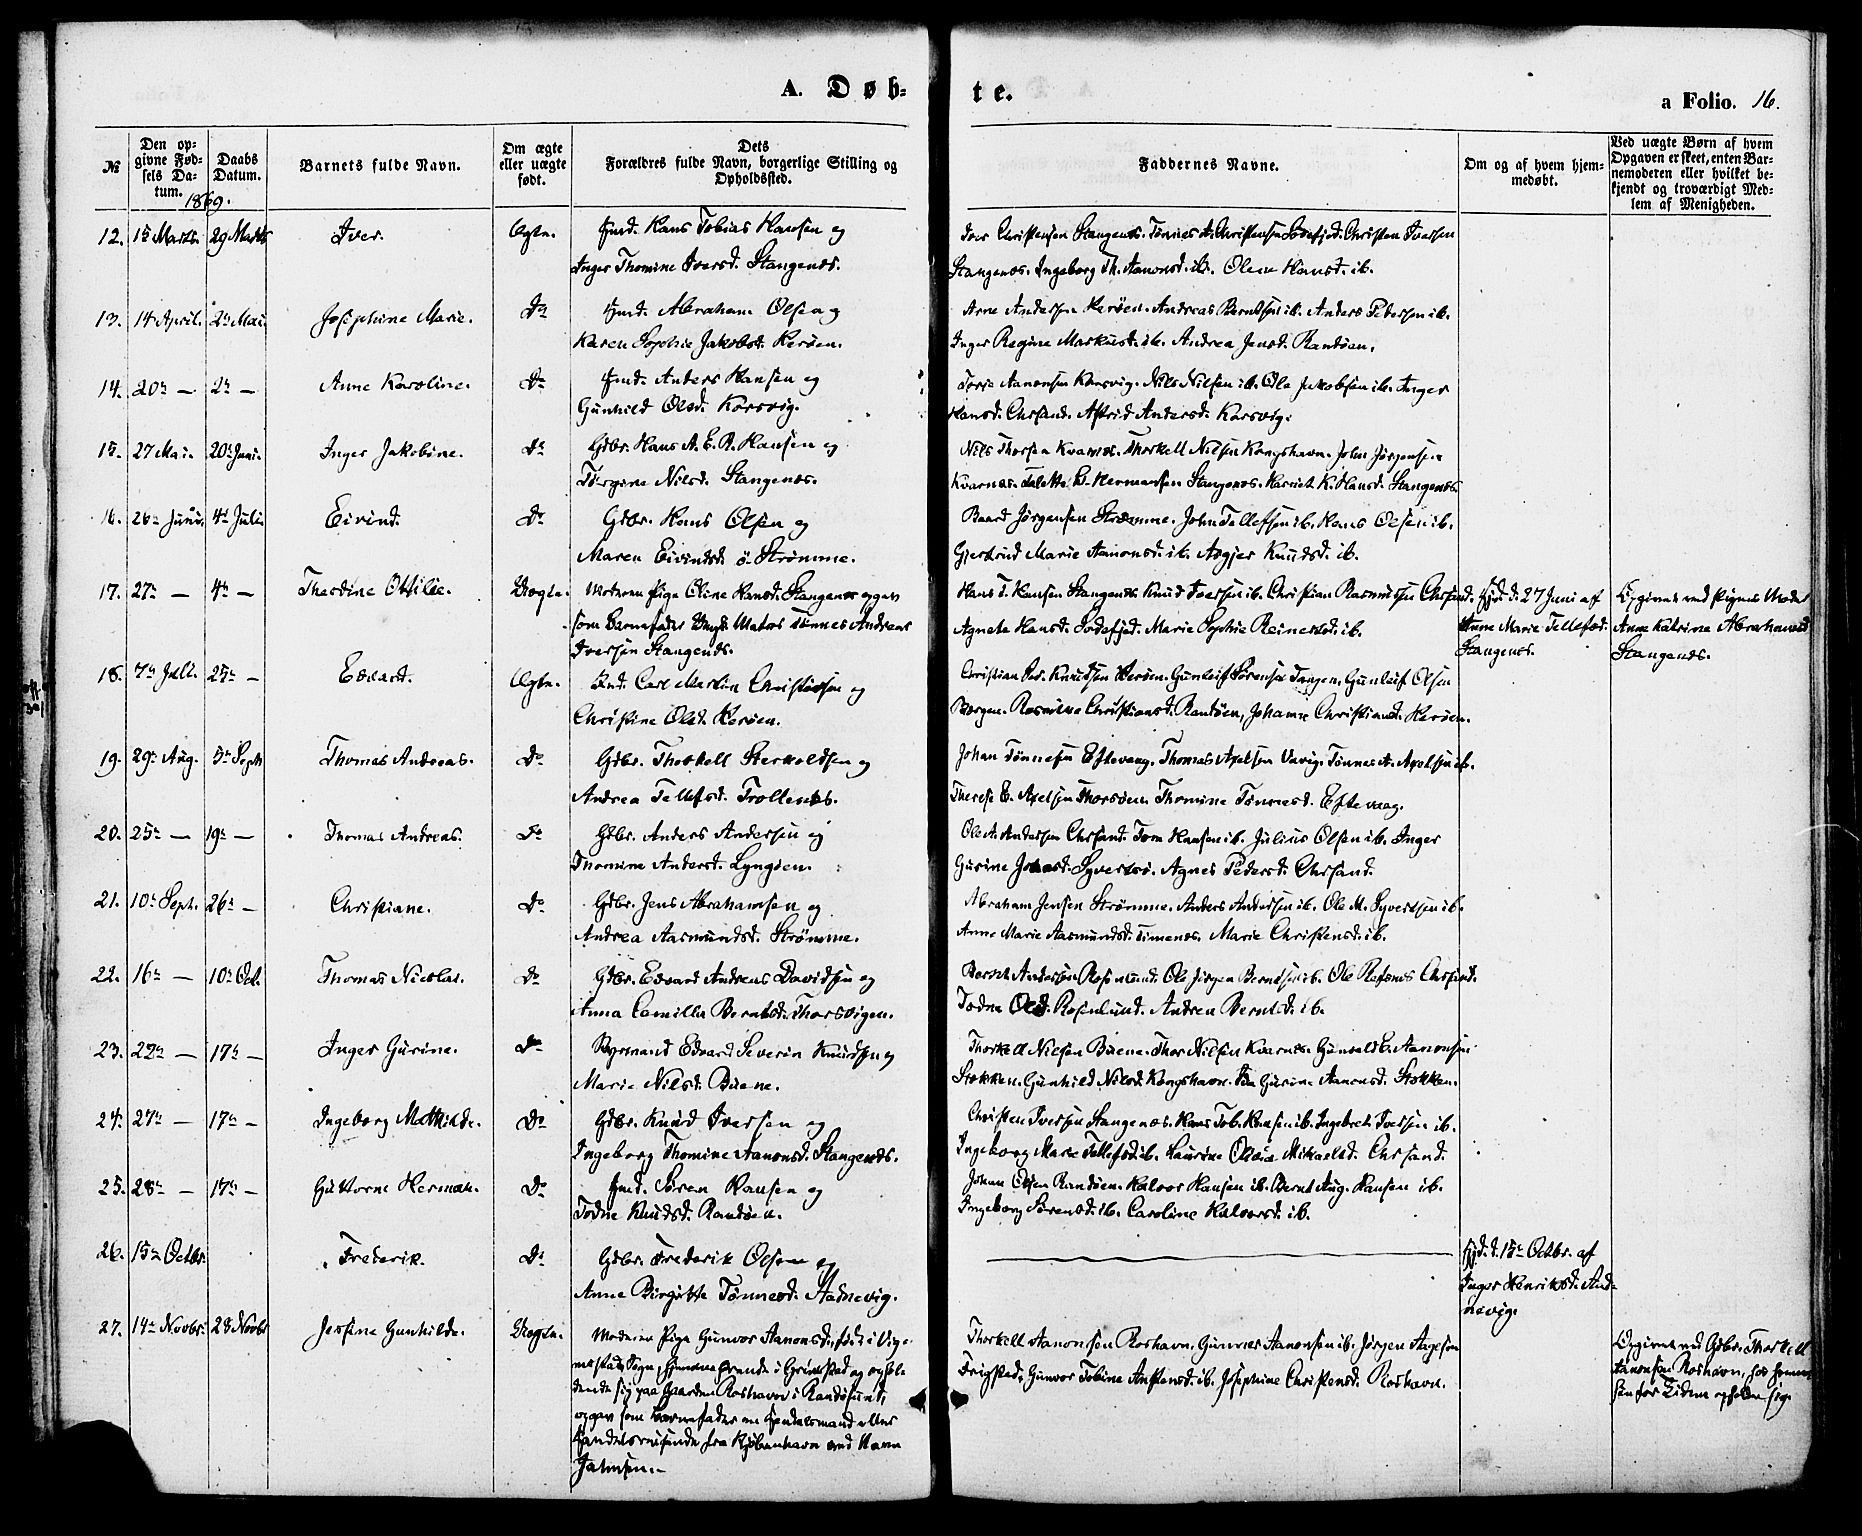 A. Døb-
te.
a Folio. 16.
№
Den op-
givne Fød-
sels Da-
tum.
1869.
Daabs
Datum.
Barnets fulde Navn.
Om ægte
eller uægte
født.
Dets
Forældres fulde Navn, borgerlige Stilling og
Opholdssted.
Faddernes Navne.
Om og af hvem hjem-
medøbt.
Ved uægte Børn af hvem
Opgaven er skeet, enten Bar-
nemoderen eller hvilket be-
kjendt og troværdigt Med-
lem af Menigheden.
12. 15 Marts. 29 Marts Iver. Ægte. Hans Tobias Hansen og
Inger Thomine Iversd. Stangenes.
Iver Christensen Stangenes. Tønnes A. Christensen Christen Iversen
Stangenes. Ingeborg Th. Aanonsd. ib. Olene Hansd. ib.
13. 14 April. 2n Mai. Josephine Marie. Do Abraham Olsen og
Karen Sophie Jakobsd. Kerøen.
Arne Andersen Kerøen. Andreas Berntsen ib. Anders Petersen ib.
Inger Regine Markusd. ib. Andrea Jensd. Randøen.
14. 20n — 2n — Anne Karoline. Do Anders Hansen og
Gunhild Olsd. Korsvig.
Terje Aanonsen Korsvig. Nils Nilsen ib. Ole Jakobsen ib. Inger
Hansd. Chrsand. Astrid Andersd. Korsvig.
15. 27 Mai. 20n Juni. Inger Jakobine. Do Gdbr. Hans A. E. B. Hansen og
Tørgine Nilsd. Stangenes.
Nils Thorsen Kvarnes. Thorkell Nilsen Kongshavn. John Jørgensen
Kvarnes. Talette B. Hermansen Stangenes. Harriet K. Hansd. Stangenes.
16. 26n Juni. 4n Juli. Eivind. Do Gdbr. Hans Olsen og
Maren Eivindsd. ø. Strømme.
Baard Jørgensen Strømme. John Tellefsen ib. Hans Olsen ib.
Gjertrud Marie Aanonsd. ib. Asgjer Knudsd. ib.
17. 27n — 4n — Thordine Ottilie. Uægte. Moderen Pige Oline Hansd. Stangenes opgav
som Barnefader Ungk. Matros Tønnes Andreas
Iversen Stangenes.
Hans T. Hansen Stangenes. Knud Iversen ib. Christian Rasmussen Chrsand.
Agnete Hansd. Marie Sophie Reinertsd. ib.
Hjd. d. 27 Juni af
Anne Marie Tellefsd.
Stangenes.
Opgivet ved Pigens Moder
Anne Katrine Abrahamsd.
Stangenes.
18. 7n Juli. 25n — Edvard. Ægte. Ind. Carl Martin Christensen og
Christine Olsd. Kerøen.
Christian Knudsen Kerøen. Gunleif Sørensen Tangen. Gunleif Olsen
Rasmine Christiansd. Randøen, Johanne Christiansd. Kerøen.
19. 29n Aug. 5n Septb Thomas Andreas. Do Gdbr. Thorkell Sterkoldsen og
Andrea Tellefsd. Trollenes.
Johan Tønnesen Eftevaag. Thomas Axelsen Uavig. Tønnes A. Axelsen ib.
Therese E. Axelsen Thorsøen. Thomine Tønnesd. Eftevaag.
20. 25n — 19n — Thomas Andreas. Do Gdbr. Anders Andersen og
Thomine Andersd. Lyngøen.
Ole A. Andersen Chrsand. Tom Hansen ib. Julius Olsen ib. Inger
Gurine Jensd. Syvertsø. Agnes Pedersd. Chrsand.
21. 10n Sept. 26n — Christiane. Do Gdbr. Jens Abrahamsen og
Andrea Aasmundsd. Strømme.
Abraham Jensen Strømme. Anders Andersen ib. Ole M. Syvertsen ib.
Anne Marie Aasmundsd. Timenes. Marie Christensd. ib.
22. 16n — 10n Oct. Thomas Nicolai. Do Gdbr. Edvard Andreas Davidsen og
Anna Camilla Berntsd. Thorsvigen.
Bernt Andersen Rosenlund. Ole Jørgen Berntsen ib. Ole Chrsand.
Todne Olsd. Rosenlund. Andrea Berntsd. ib.
23. 22n — 17n — Inger Gurine. Do Edvard Severin Knudsen og
Marie Nilsd. Buene.
Thorkell Nilsen Buene. Thor Nilsen Kvarnes. Gunvald E. Aanonsen
Stokken. Gunhild Nilsd. Kongshavn. Gurine Aanonsd. Stokken.
24. 27n — 17n — Ingeborg Mathilde. Do Gdbr. Knud Iversen og
Ingeborg Thomine Aanonsd. Stangenes.
Christen Iversen Stangenes. Hans Tob. Hansen ib. Ingebret Iversen ib.
Ingeborg Marie Tellefsd. ib. Laurine Olevia Mikaelsd. Chrsand.
25. 28n — 17n — Guttorm Herman. Do Søren Hansen og
Todne Knudsd. Randøen.
Johan Olsen Randøen. Halvor Hansen ib. Bernt Aug. Hansen ib.
Ingeborg Sørensd. ib. Caroline Halvorsd. ib.
26. 15n Octbr. Frederik. Do Gdbr. Frederik Olsen og
Anne Birgitte Tønnesd. Stadnevig.
Hjd. d. 15n Octbr. af
Inger Henriksd.
nevig.
27. 14n Novbr. 28 Novbr Jensine Gunhilde. Uægte. Moderen Pige Gunvor Aanonsd. født i
Sogn, hjemmehørende i Grimstad og ophol-
dende sig paa Gaarden Roshavn i Randøsund,
opgav som Barnefader en Handelsmand eller
Handelsreisende fra Kjøbenhavn ved Navn
Jahnsen.
Thorkell Aanonsen Roshavn. Gunnes Aanonsen ib. Jørgen Aagesen
Frigsted. Gunvor Tobine Anstensd. ib. Josephine Christensd. Roshavn.
Opgivet ved Gdbr. Thorkell
Aanonsen Roshavn, hos hvem
for Tiden opholder sig.